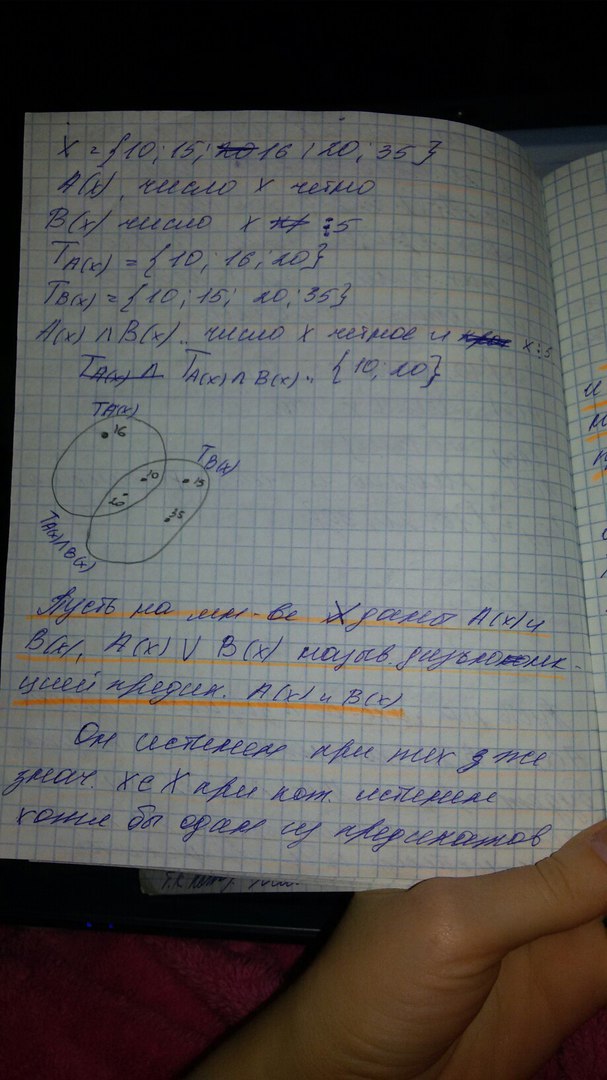 X = {10; 15; 20 16; 20; 35}
A(x), число x четно
B(x) число x ⋮5
T A(x) = {10; 16; 20}
T B(x) = {10; 15; 20; 35}
A(x) ∧ B(x).. число x четное и x⋮5
T A(x) ∧ T A(x) ∧ B(x) = {10; 20}
T A(x)
16
T B(x)
10
15
20
35
T A(x) ∧ B(x)
Пусть на мн-ве X даны A(x) и
B(x), A(x) V B(x) назыв. дизъюнк-
цией предик. A(x) и B(x)
Он истинен при тех же
знач. x ∈ X при кот. истинен
хотя бы один из предикатов